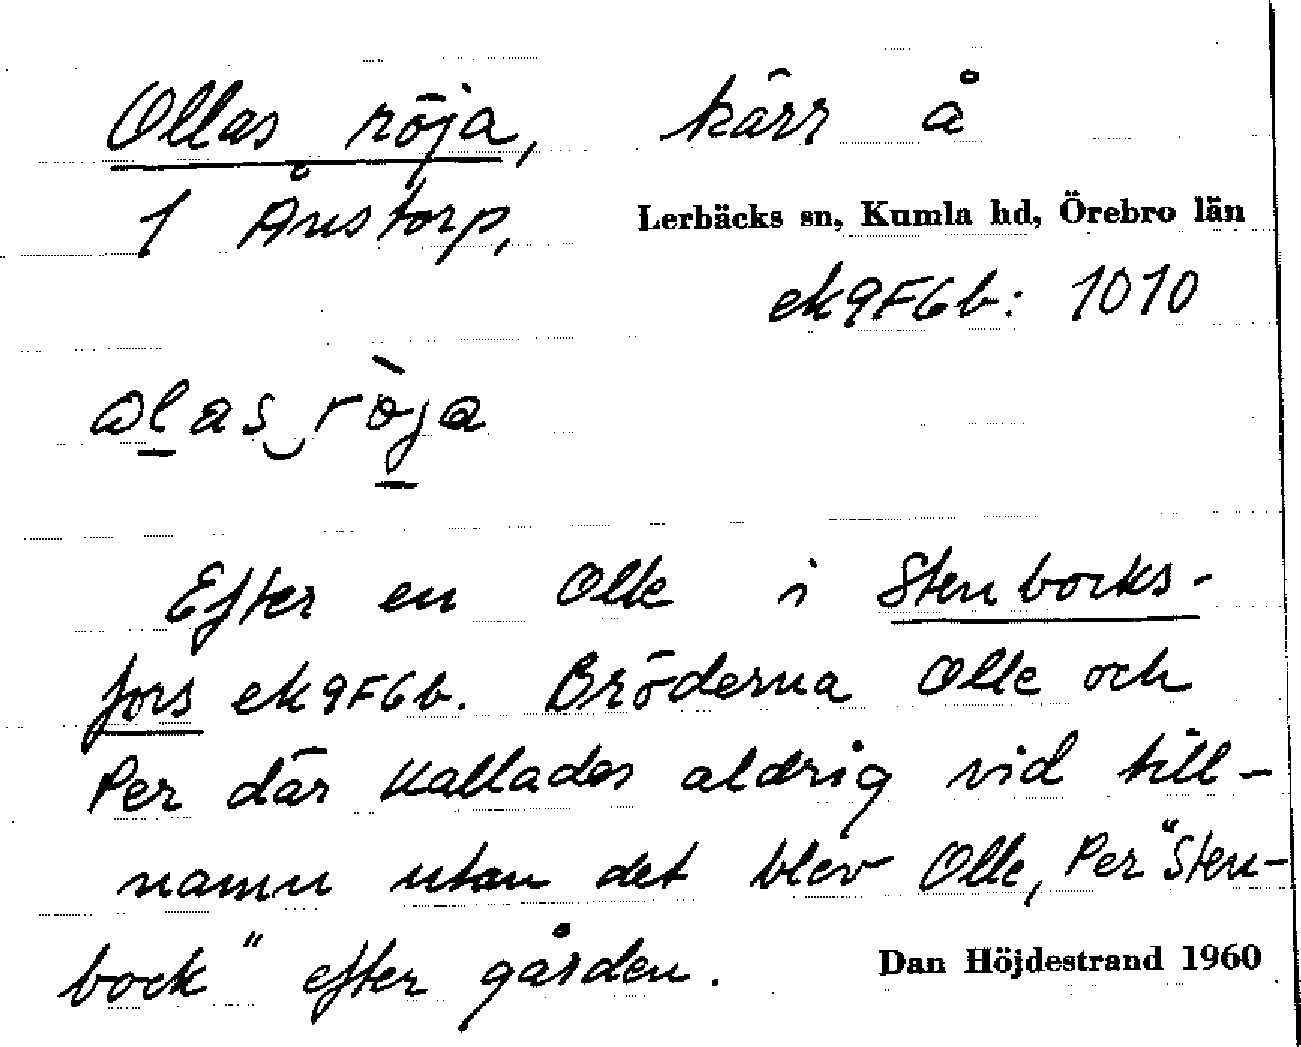 Ollas röja, kärr å
1 Ånstorp, Lerbäcks sn, Kumla hd, Örebro län
ek9F6b: 1010
ɷlas röja
Efter en Olle i Stenbocks-
fors ek9F6b. Bröderna Olle och
Per där kallades aldrig vid till-
namn utan det blev Olle, Per "Sten-
bock" efter gården. Dan Höjdestrand 1960